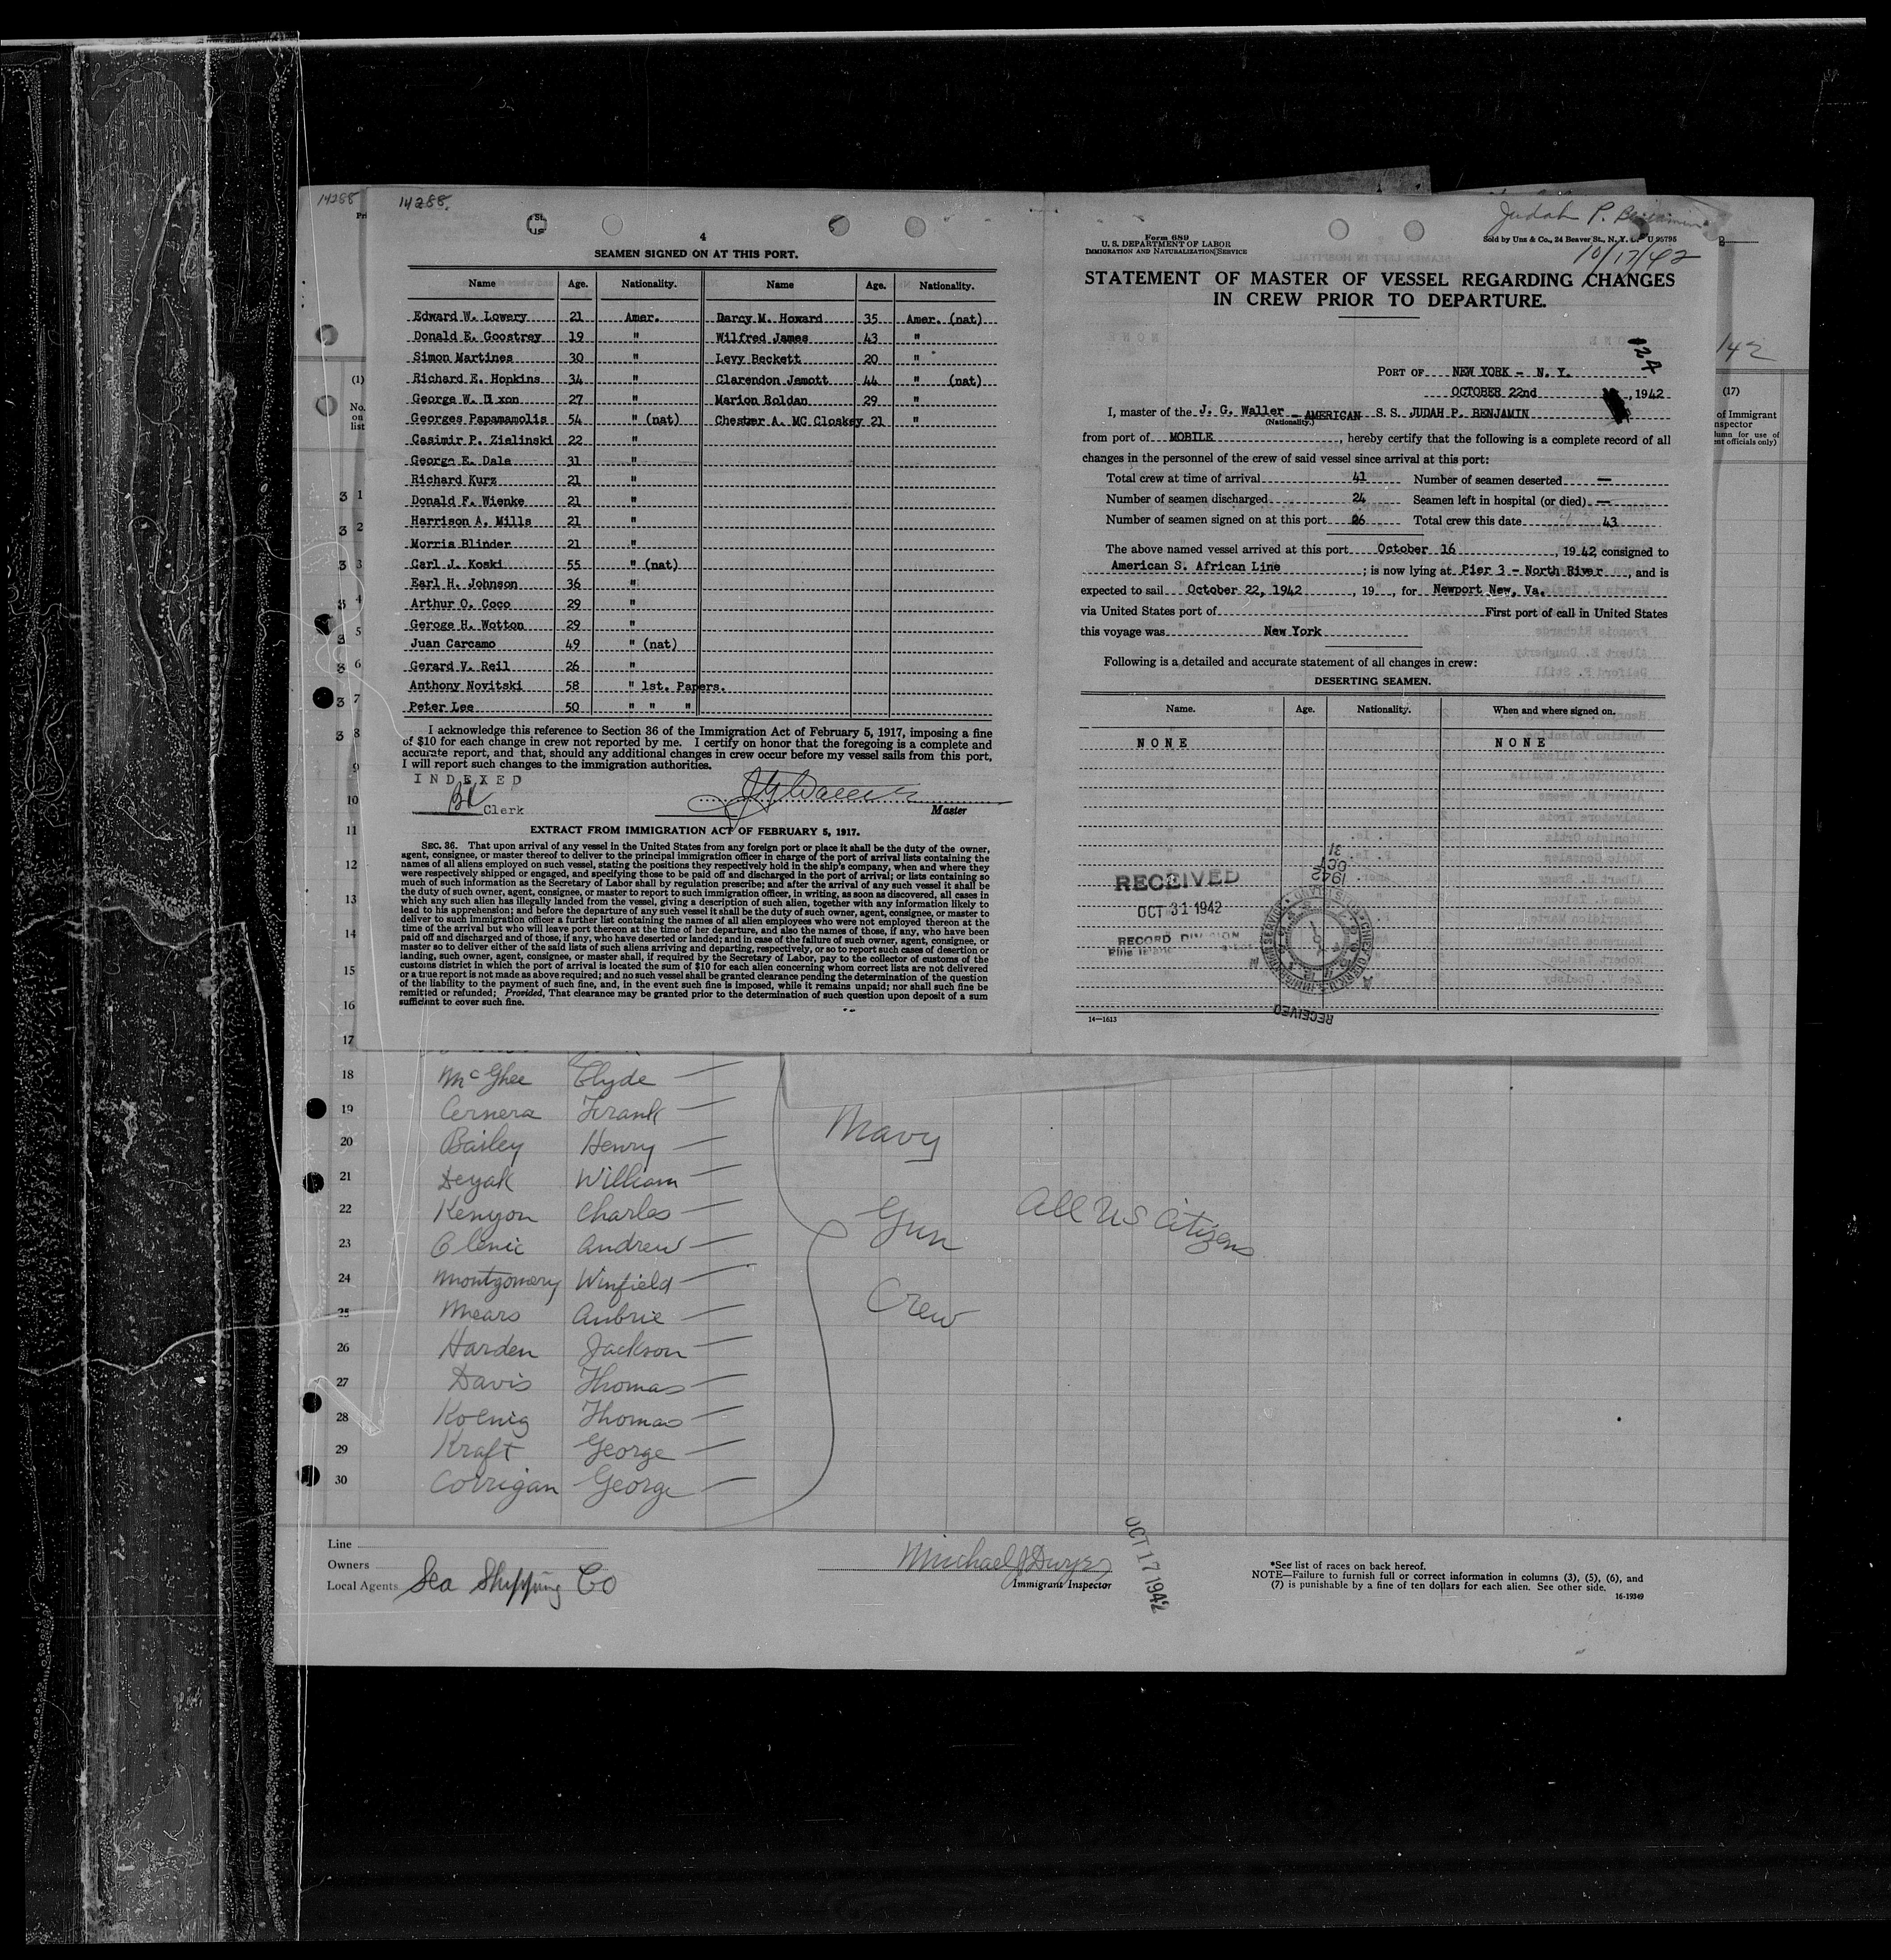 14288
14288.
4
SEAMEN SIGNED ON AT THIS PORT.
Name Age. Nationality. Name Age. Nationality.
Edward W. Lowery 21 Amer. Darcy M. Howard 35 Amer. (nat)
Donald E. Goostrey 19 " Wilfred James 43 "
Simon Martines 30 " Levy Beckett 20 "
Richard E. Hopkins 34 " Clarendon Jemott 44 " (nat)
George W. Dixon 27 " Marion Roldan 29 "
Georges Papamamolis 54 " (nat) Chester A. MC Closkey 21 "
Casimir P. Zielinski 22 "
George E. Dale 31 "
Richard Kurz 21 "
Donald F. Wienke 21 "
Harrison A. Mills 21 "
Morris Blinder 21 "
Carl J. Koski 55 " (nat)
Earl H. Johnson 36 "
Arthur O. Coco 29 "
Geroge H. Wotton 29 "
Juan Carcamo 49 " (nat)
Gerard V. Reil 26 "
Anthony Novitski 58 " 1st. Papers.
Peter Lee 50 " " "
I acknowledge this reference to Section 36 of the Immigration Act of February 5, 1917, imposing a fine
of $10 for each change in crew not reported by me. I certify on honor that the foregoing is a complete and
accurate report, and that, should any additional changes in crew occur before my vessel sails from this port,
I will report such changes to the immigration authorities.
INDEXED
Clerk
Master
EXTRACT FROM IMMIGRATION ACT OF FEBRUARY 5, 1917.
SEC. 36. That upon arrival of any vessel in the United States from any foreign port or place it shall be the duty of the owner,
agent, consignee, or master thereof to deliver to the principal immigration officer in charge of the port of arrival lists containing the
names of all aliens employed on such vessel, stating the positions they respectively hold in the ship's company, when and where they
were respectively shipped or engaged, and specifying those to be paid off and discharged in the port of arrival; or lists containing so
much of such information as the Secretary of Labor shall by regulation prescribe; and after the arrival of any such vessel it shall be
the duty of such owner, agent, consignee, or master to report to such immigration officer, in writing, as soon as discovered, all cases in
which any such alien has illegally landed from the vessel, giving a description of such alien, together with any information likely to
lead to his apprehension; and before the departure of any such vessel it shall be the duty of such owner, agent, consignee, or master to
deliver to such immigration officer a further list containing the names of all alien employees who were not employed thereon at the
time of the arrival but who will leave port thereon at the time of her departure, and also the names of those, if any, who have been
paid off and discharged and of those, if any, who have deserted or landed; and in case of the failure of such owner, agent, consignee, or
master so to deliver either of the said lists of such aliens arriving and departing, respectively, or so to report such cases of desertion or
landing, such owner, agent, consignee, or master shall, if required by the Secretary of Labor, pay to the collector of customs of the
customs district in which the port of arrival is located the sum of $10 for each alien concerning whom correct lists are not delivered
or a true report is not made as above required; and no such vessel shall be granted clearance pending the determination of the question
of the liability to the payment of such fine, and, in the event such fine is imposed, while it remains unpaid; nor shall such fine be
remitted or refunded; Provided, That clearance may be granted prior to the determination of such question upon deposit of a sum
sufficient to cover such fine.
Judah P. Benjamin
10/17/42
Form 689
U. S. DEPARTMENT OF LABOR
IMMIGRATION AND NATURALIZATION SERVICE
Sold by Unz & Co., 24 Beaver St., N. Y. C. U 95795
STATEMENT OF MASTER OF VESSEL REGARDING CHANGES
IN CREW PRIOR TO DEPARTURE.
12A
PORT OF NEW YORK - N. Y.
OCTOBER 22nd , 1942
I, master of the J. G. Waller - AMERICAN S. S. JUDAH P. BENJAMIN
(Nationality.)
from port of MOBILE , hereby certify that the following is a complete record of all
changes in the personnel of the crew of said vessel since arrival at this port:
Total crew at time of arrival 41 Number of seamen deserted —
Number of seamen discharged 24 Seamen left in hospital (or died) —
Number of seamen signed on at this port 26 Total crew this date 43
The above named vessel arrived at this port October 16 , 1942, consigned to
American S. African Line ; is now lying at Pier 3 - North River , and is
expected to sail October 22, 1942 , 19 , for Newport New, Va.
via United States port of First port of call in United States
this voyage was New York
Following is a detailed and accurate statement of all changes in crew:
DESERTING SEAMEN.
Name. Age. Nationality. When and where signed on.
NONE NONE
RECEIVED
OCT 31 1942
RECORD DIVISION
1942
OCT
31
RECEIVED
14—1613
(1)
No.
on
list
142
(17)
of Immigrant
nspector
3 1
3 2
3 3
3 4
3 5
3 6
3 7
3 8
9
10
11
12
13
14
15
16
17
18 McGhee Clyde —
19 Cernera Frank —
20 Bailey Henry —
21 Deyak William —
22 Kenyon Charles —
23 Clenic Andrew —
24 Montgomery Winfield —
25 Mears Aubrie —
26 Harden Jackson —
27 Davis Thomas —
28 Koenig Thomas —
29 Kraft George —
30 Corrigan George —
Navy
Gun
Crew
All US Citizens
Line
Owners
Local Agents Sea Shipping Co
Michael J Dwyer
Immigrant Inspector
OCT 17 1942
*See list of races on back hereof.
NOTE—Failure to furnish full or correct information in columns (3), (5), (6), and
(7) is punishable by a fine of ten dollars for each alien. See other side.
16-19349